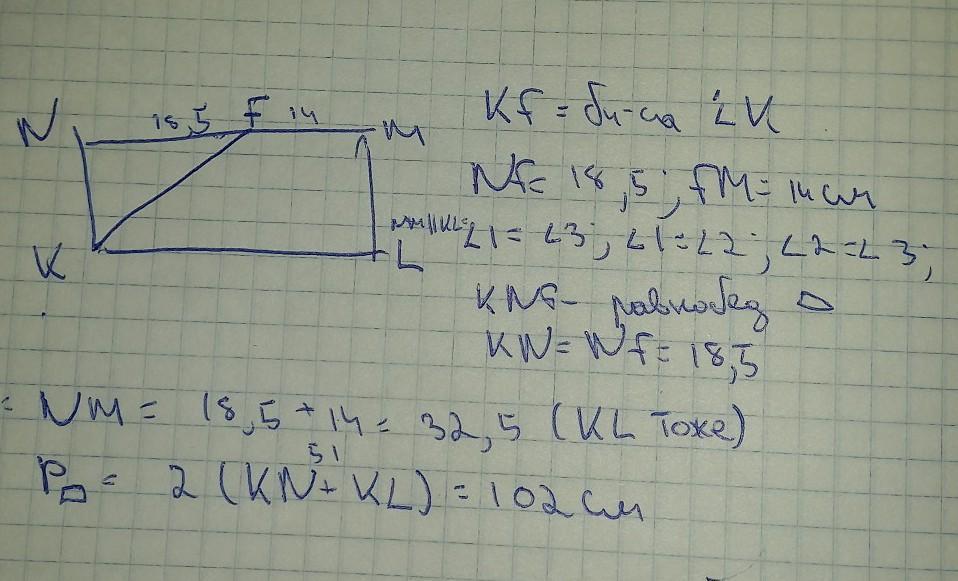 N 18,5 F 14 M
K L
KF = би-са ∠K
NF = 18,5; FM = 14 см
NM||KL = ∠1 = ∠3; ∠1 = ∠2; ∠2 = ∠3;
KNF - равнобед △
KN = NF = 18,5
= NM = 18,5 + 14 = 32,5 (KL тоже)
51
P▱ = 2 (KN + KL) = 102 см